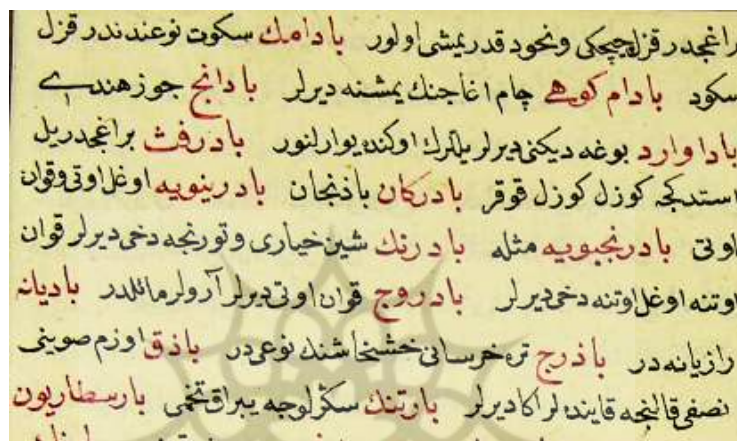 راغجدر قزل چچکی ونخود قدر یمشی اولور بادامك سکوت نوعندندر قزل
سکود بادام کوهی چام اغاجنك یمشنه دیرلر بادانج جوز هندی
باداوارد بوغه دیکنی دیرلر یلارك اوکنده یوارلنور بادرفث براغجدر یل
استدکجه کوزل کوزل قوقر بادرکان باذنجان بادرینویه اوغل اوتی وقوان
اوتی بادرنجبویه مثله بادرنك شین خیاری و تورنجه دخی دیرلر قوان
اوتنه اوغل اوتنه دخی دیرلر بادروج قوان اوتی دیرلر آرولر مائلدر بادیانه
رازیانه در باذرج تره خرسانی خشخاشنك نوعی در باذق اوزم صوینی
نصفی قالنجه قاینده لر اکا دیرلر بارتنك سکرلوجه یپراق تخمی بارسطاریون